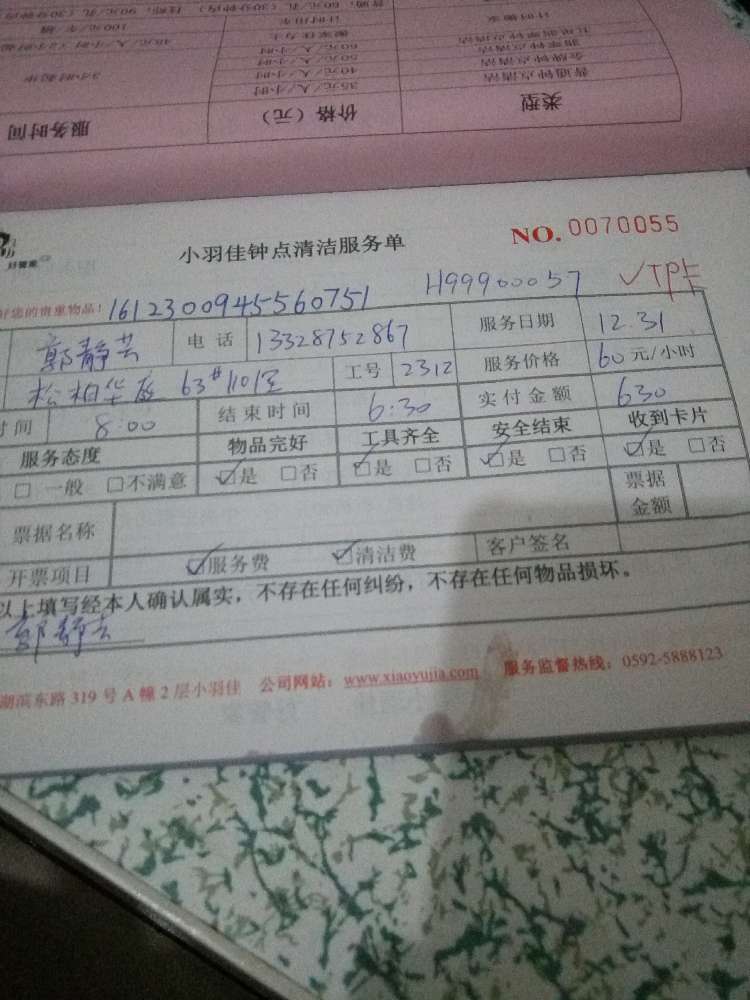 普通钟点清洁 35元/人/小时
金牌钟点清洁 40元/人/小时
50元/人/小时
60元/人/小时
3小时起步
类型 价格（元） 服务时间
好管家
小羽佳钟点清洁服务单 NO. 0070055
好您的贵重物品! 1612300945560751 H99960057 √TP卡
郭静芸 电话 13328752867 服务日期 12.31
松柏华庭 63#1101室 工号 2312 服务价格 60元/小时
时间 8:00 结束时间 6:30 实付金额 630
服务态度 物品完好 工具齐全 安全结束 收到卡片
□一般 □不满意 ☑是 □否 ☑是 □否 ☑是 □否 ☑是 □否
票据名称 票据金额
开票项目 ☑服务费 ☑清洁费 客户签名
以上填写经本人确认属实，不存在任何纠纷，不存在任何物品损坏。
郭静芸
湖滨东路319号A幢2层小羽佳 公司网站：www.xiaoyujia.com 服务监督热线：0592-5888123